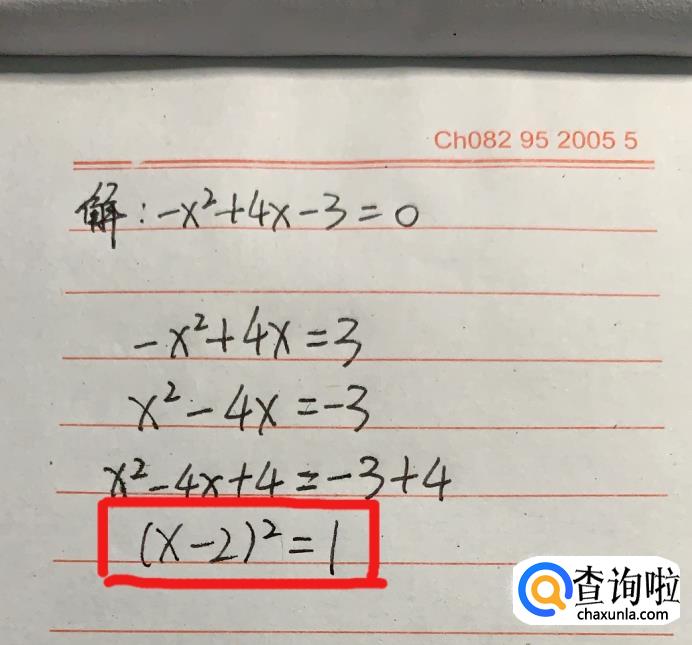 Ch082 95 2005 5
解：-x²+4x-3=0
-x²+4x=3
x²-4x=-3
x²-4x+4=-3+4
(x-2)²=1
查询啦
chaxunla.com